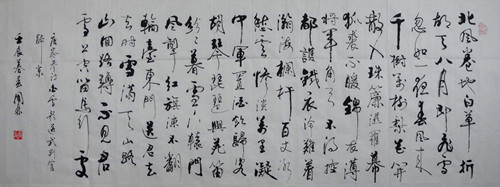 北風卷地白草折
胡天八月即飛雪
忽如一夜春風來
千樹萬樹梨花開
散入珠簾濕羅幕
狐裘不暖錦衾薄
將軍角弓不得控
都護鐵衣冷難着
瀚海欄杆百丈冰
愁雲慘淡萬里凝
中軍置酒飲歸客
胡琴琵琶與羌笛
紛紛暮雪下轅門
風掣紅旗凍不翻
輪臺東門送君去
去時雪滿天山路
山回路轉不見君
雪上空留馬行處
唐岑參詩白雪歌送武判官
歸京
壬辰暮春